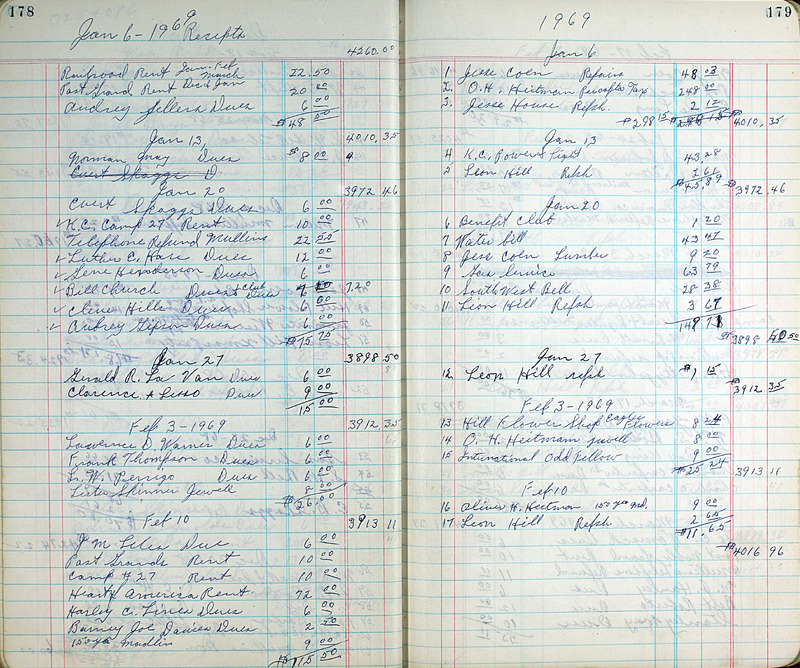 178
Jan 6 - 1969 Receipts
4260.00
Railroad Rent Jan - Feb March 22.50
Past Grand Rent Dec & Jan 20 00
Audrey Sellers Dues 6 00
$48 50
Jan 13, 4010,35
Norman Gray Dues $8 00
Evert Skaggs D
Jan 20 3972 46
Evert Skaggs Dues 6 00
K.C. Camp 27 Rent 10 00
Telephone Refund Mullins 22 55
Luther C. Hase Dues 12 00
Gene Henderson Dues 6 00
Bill Church Dues & Club Dues 7 20 7,20
Cleve Hills Dues 6 00
Aubrey Gipson Dues 6 00
$75 75
Jan 27 3898 50
Gerald R. La Van Due 6 00
Clarence A Due 9 00
15 00
Feb 3 - 1969 3912,35
Lawrence D. Warner Dues 6 00
Frank Thompson Dues 6 00
W. Perrigo Due 6 00
Lester Skinner Jewell 8 00
$26.00
Feb 10 3913 11
J M Liles Due 6 00
Past Grands Rent 10 00
Camp # 27 Rent 10 00
Heart America Rent 72 00
Harley C. Dues 6 00
Barney Joe Davies Dues 2 50
150 yr 9 00
$115 50
179
1969
Jan 6
1 Jesse Coen Repairs 48 03
2. O.H. Heitman Tax 248 00
3. Jesse House Refsh. 2 12
$298 15 4010,35
Jan 13
4 K.C. Power & Light 43.28
5 Leon Hill Rfsh 2 61
$45,89 $3972,46
Jan 20
6 Benefit Club 1 20
7 Water bill 43 47
8 Jess Coen Lumber 9 20
9 Gas Service 63 79
10 SouthWest Bell 28 38
11 Leon Hill Refsh 3 67
149 71
3898 50
Jan 27
12 Leon Hill refsh $1 15
$3912 35
Feb 3 - 1969
13 Hill Flower Shop Eagles Flowers 8 24
14 O. H. Heitman Jewell 8 00
15 International Odd Fellow 9 00
$25 24 3913 11
Feb 10
16 Oliver H. Heitman 150 yr 9 00
17 Leon Hill Refsh 2 65
$11.65
$4016 96